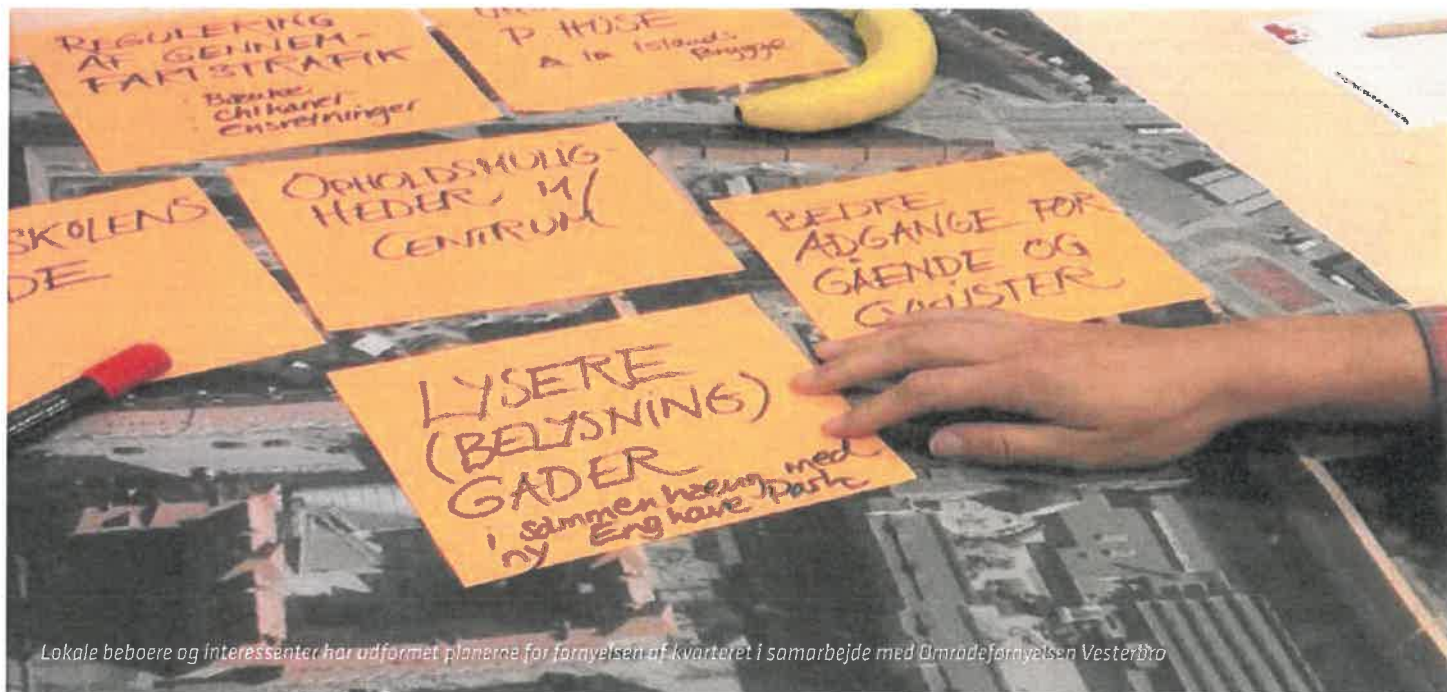 REGULERING
AF GENNEM-
FARTSTRAFIK
Bække
chikaner
ensretninger
P HUSE
a la Islands
Brygge
SKOLENS
DE
OPHOLDSMULIG-
HEDER M/
CENTRUM
BEDRE
ADGANGE FOR
GÅENDE OG
CYKLISTER
LYSERE
(BELYSNING)
GADER
i sammenhæng med
ny Enghave Park
Lokale beboere og interessenter har udformet planerne for fornyelsen af kvarteret i samarbejde med Områdefornyelsen Vesterbro